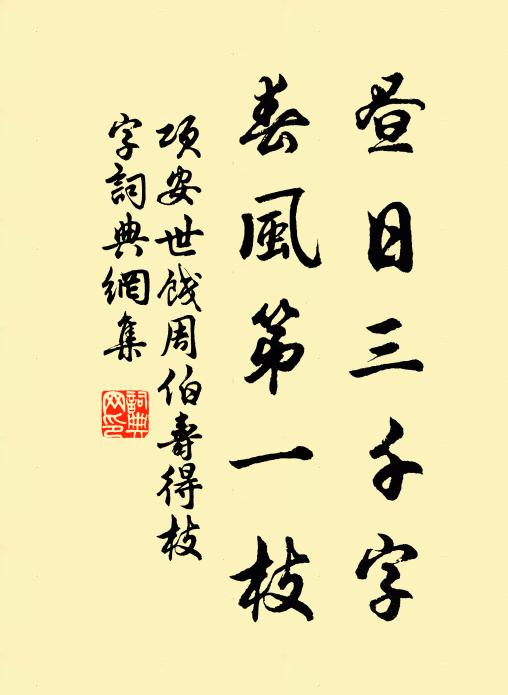 昼日三千字
春風第一枝
項安世餞周伯壽得枝
字詞典網集
詞典网印